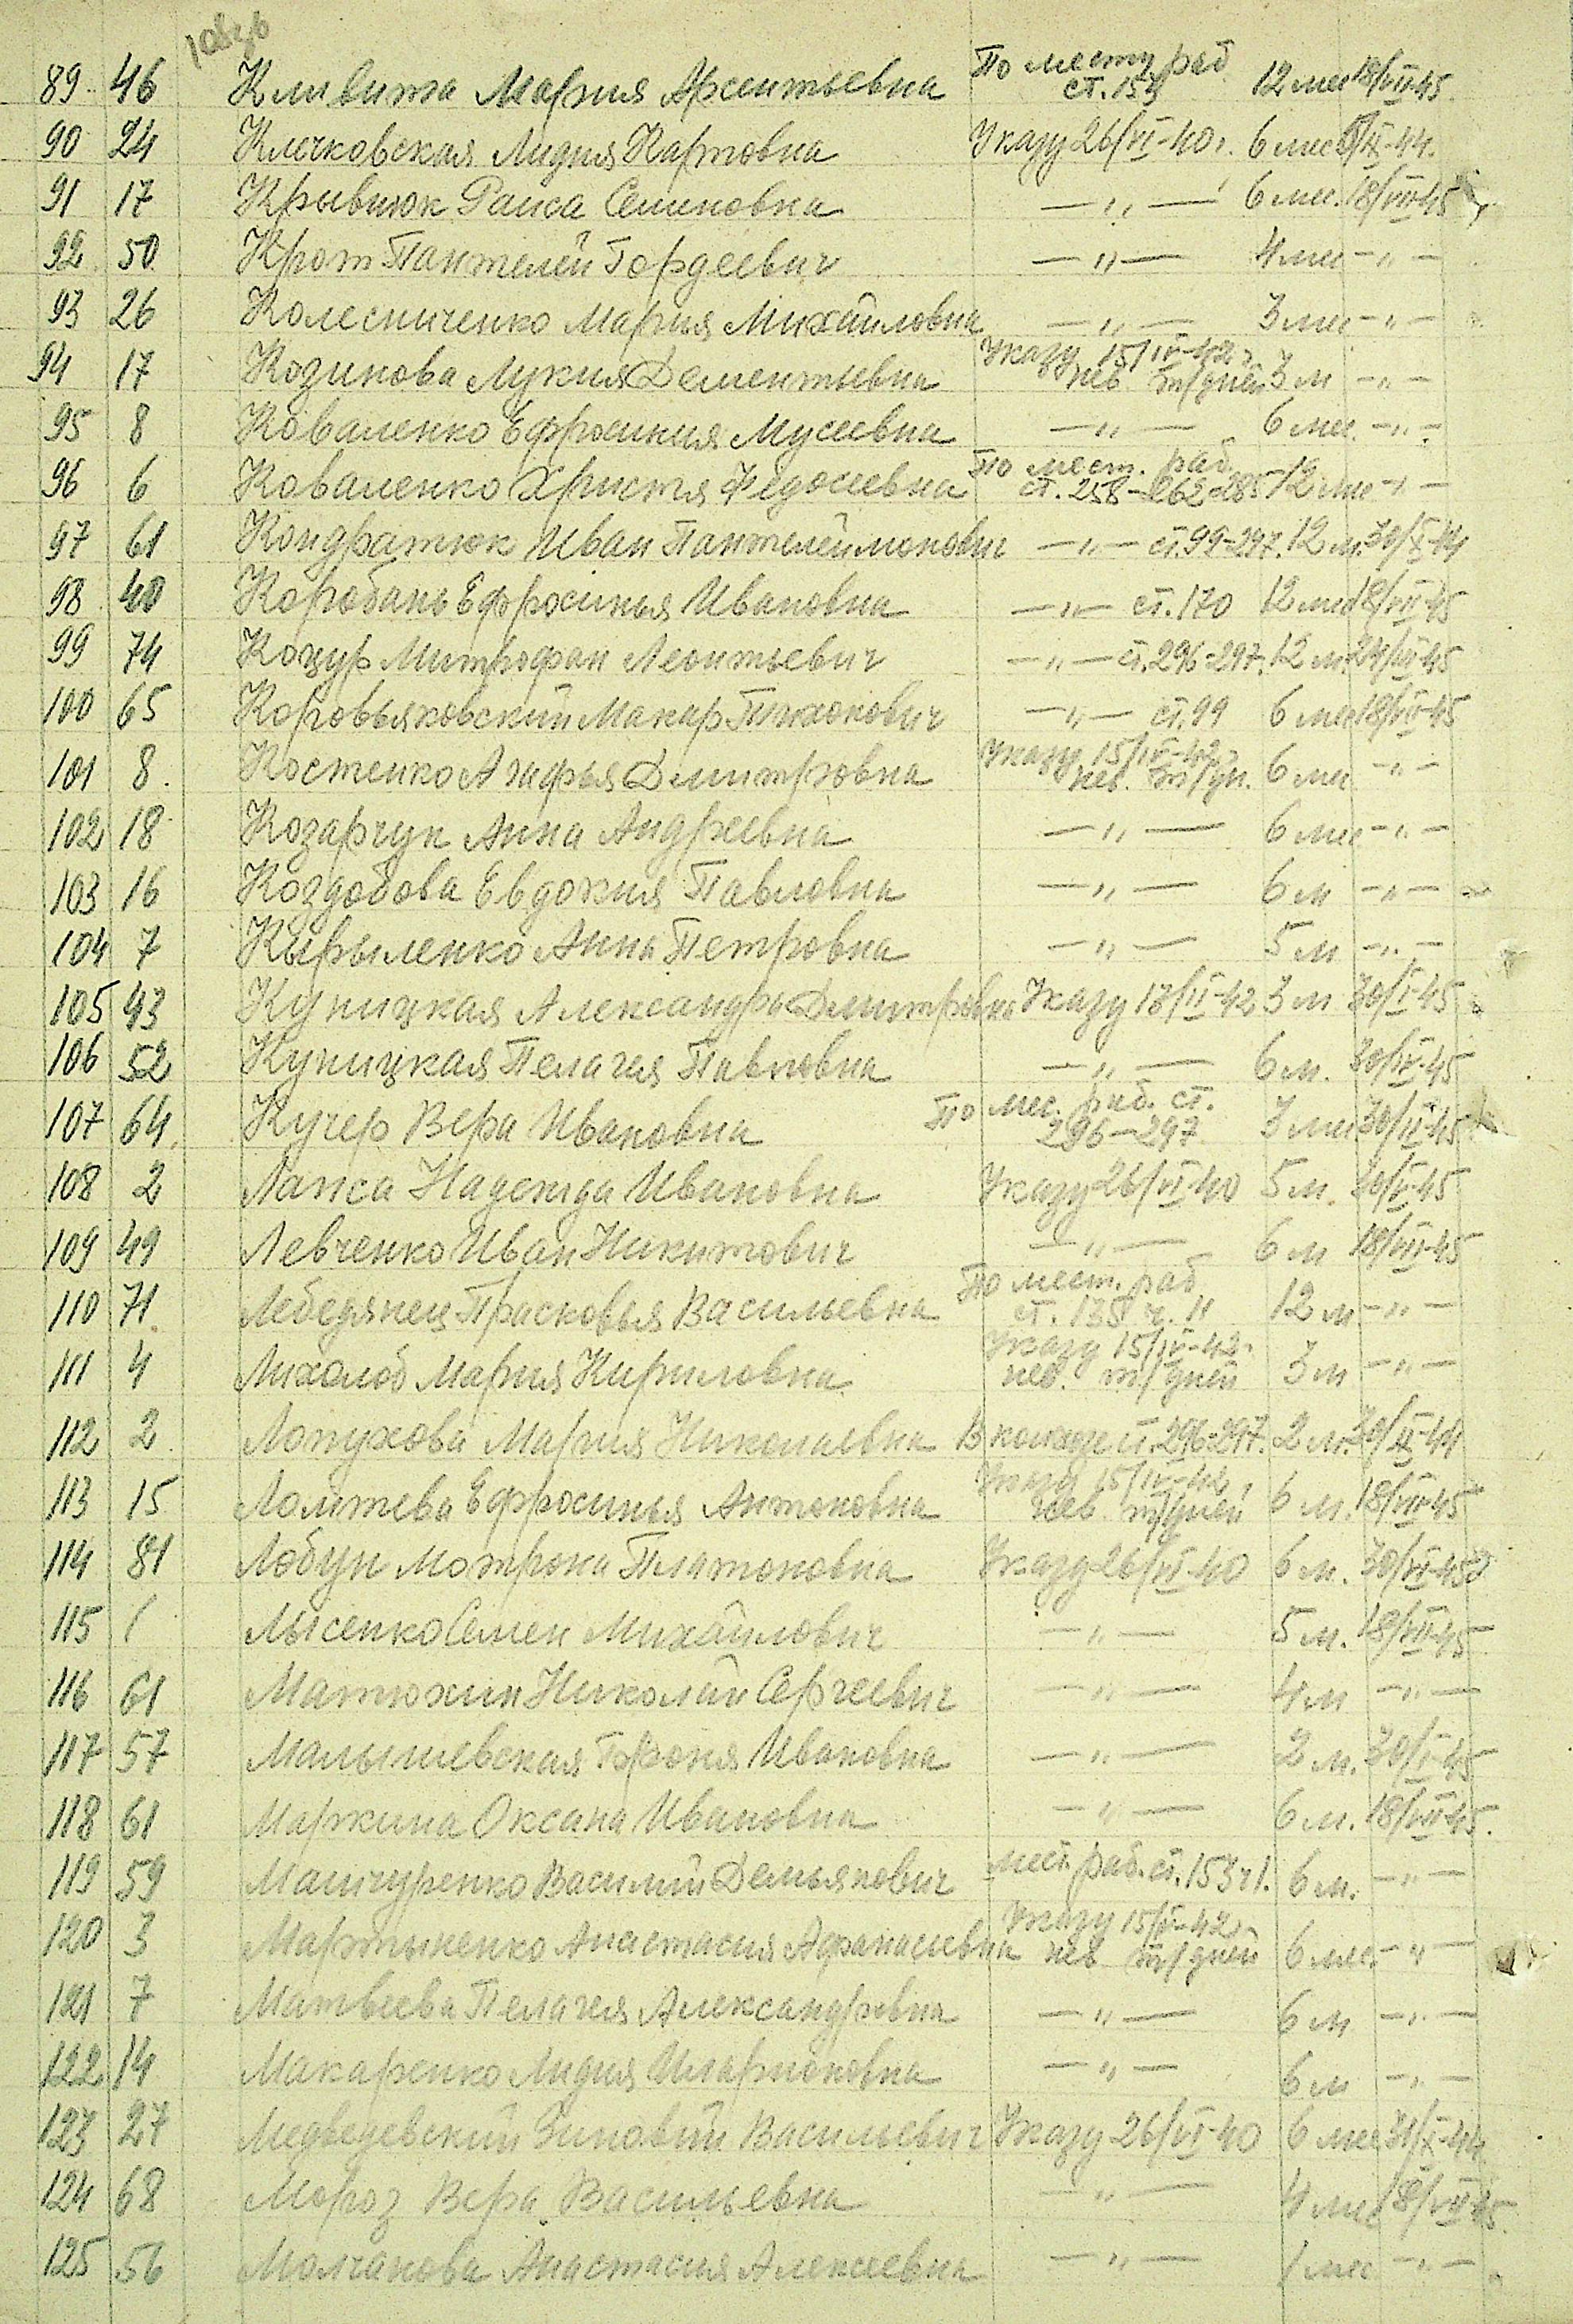 89. 46 Кливита Мария Арсентьевна По месту раб ст. 154 12 мес 18/VII-45
90 24 Клечковская Лидия Карповна Указу 26/VI-40г. 6 мес /IX-44.
91 17 Крывнюк Раиса Семеновна —„— 6 мес. 18/VII-45
92. 50. Крот Пантелей Гордеевич —„— 4 мес —„—
93 26 Колесниченко Мария Михайловна —„— 3 мес —„—
94 17 Козинова Лукия Дементьевна Указу 15/IV-42г. нев. т/дней 3 м —„—
95 8 Коваленко Ефросиния Мусеевна —„— 6 мес. —„—
96 6 Коваленко Христя Федосеевна По мест. раб. ст. 258-262-285 12 мес —„—
97 61 Кондратюк Иван Пантелеймонович —„— ст. 99-297. 12 м. 30/IX-44
98. 40 Коробань Ефросинья Ивановна —„— ст. 170 12 мес 18/VII-45
99 74 Коцур Митрофан Леонтьевич —„— ст. 296-297. 12 м. 24/VII-45
100 65 Коровьяковский Макар Тихонович —„— ст. 99 6 мес 18/VII-45
101 8. Костенко Агафья Дмитровна Указу 15/IV-42г. нев. т/дн. 6 мес —„—
102 18 Козарчук Анна Андреевна —„— 6 мес —„—
103 16 Коздобова Евдокия Павловна —„— 6 м —„—
104 7 Кырыленко Анна Петровна —„— 5 м —„—
105 43 Куницкая Александра Дмитровна Указу 13/II-42 3 м 30/V-45
106 52 Куницкая Пелагея Павловна —„— 6 м. 30/VI-45
107 64. Кучер Вера Ивановна По мес. раб. ст. 296-297 3 мес 30/VI-45
108 2 Лапса Надежда Ивановна Указу 26/VI-40 5 м. 30/V-45
109 49 Левченко Иван Никитович —„— 6 м 18/VII-45
110 71. Лебедянец Прасковья Васильевна По мест. раб. ст. 135 ч. II 12 м —„—
111 4 Лихолоб Мария Кириловна Указу 15/IV-42г. нев. т/дней 3 м —„—
112 2. Лопухова Мария Николаевна В колхозе ст. 296-297. 2 м. 30/IX-44
113 15 Ломтева Ефросинья Антоновна Указу 15/IV-42 нев. т/дней 6 м. 18/VII-45
114 81 Лобун Мотрона Платоновна Указу 26/VI-40 6 м. 30/VI-45
115 1 Лысенко Семен Михайлович —„— 5 м. 18/VII-45
116 61 Матюхин Николай Сергеевич —„— 4 м —„—
117 57 Малышевская Ивановна —„— 2 м. 30/V-45
118 61 Маркина Оксана Ивановна —„— 6 м. 18/VII-45.
119 59 Манчуренко Василий Демьянович мест. раб. ст. 153 ч 1. 6 м. —„—
120 3 Мартыненко Анастасия Афанасиевна Указу 15/IV-42г. нев т/дней 6 мес. —„—
121 7 Матвеева Пелагея Александровна —„— 6 м —„—
122 14 Макаренко Лидия Иларионовна —„— 6 м —„—
123 27 Медведевский Зиновий Васильевич Указу 26/VI-40 6 мес 31/X-44
124 68 Мороз Вера Васильевна —„— 4 мес 18/VII-45.
125 56 Молчанова Анастасия Алексеевна —„— 1 мес —„—